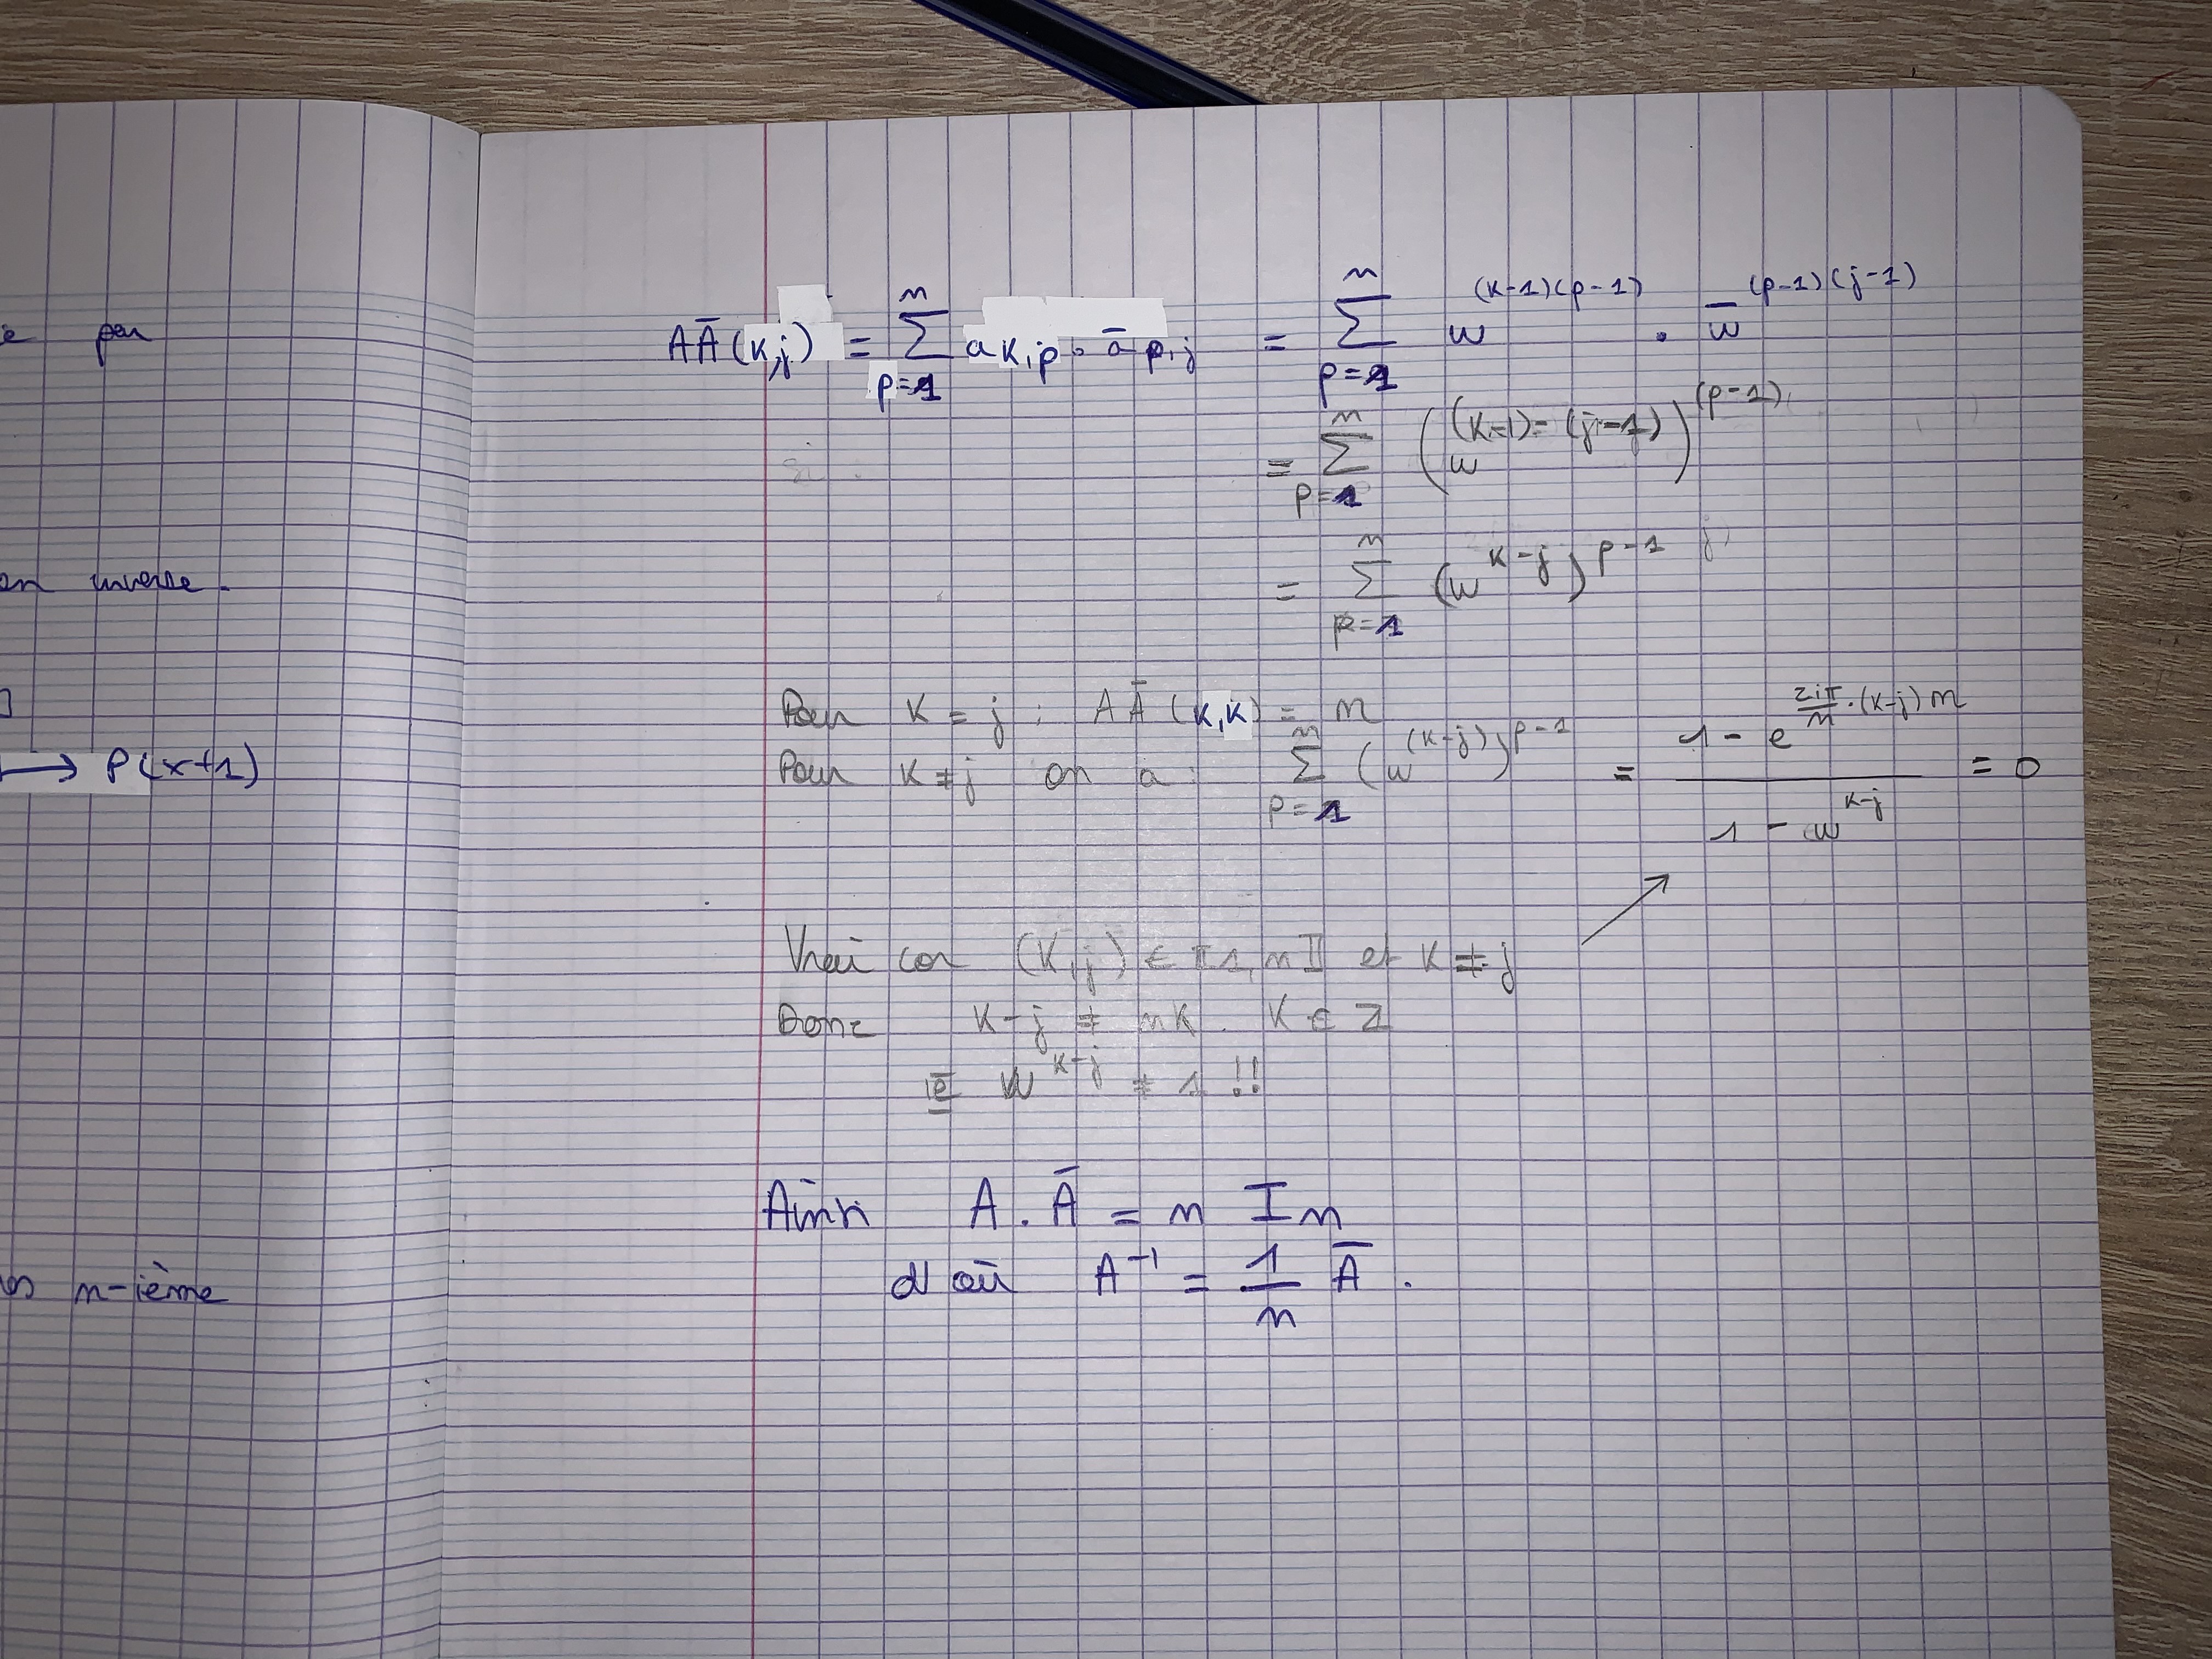 e par
en inverse.
]
⟼ P(x+1)
n-ième
AĀ(k,j) = ∑_{p=1}^{n} a_{k,p} · ā_{p,j} = ∑_{p=1}^{n} w^{(k-1)(p-1)} · w̄^{(p-1)(j-1)}
Si
= ∑_{p=1}^{n} (w^{(k-1)-(j-1)})^{(p-1)}
= ∑_{p=1}^{n} (w^{k-j})^{p-1}
Pour k = j : AĀ(k,k) = n
Pour k ≠ j on a : ∑_{p=1}^{n} (w^{(k-j)})^{p-1} = \frac{1 - e^{\frac{2iπ}{n}·(k-j)n}}{1 - w^{k-j}} = 0
Vrai car (k,j) ∈ ⟦1,n⟧ et k ≠ j
Donc k-j ≠ nK . K ∈ Z
ie w^{k-j} ≠ 1 !!
Ainsi A.Ā = n In
d'où A^{-1} = \frac{1}{n} Ā .